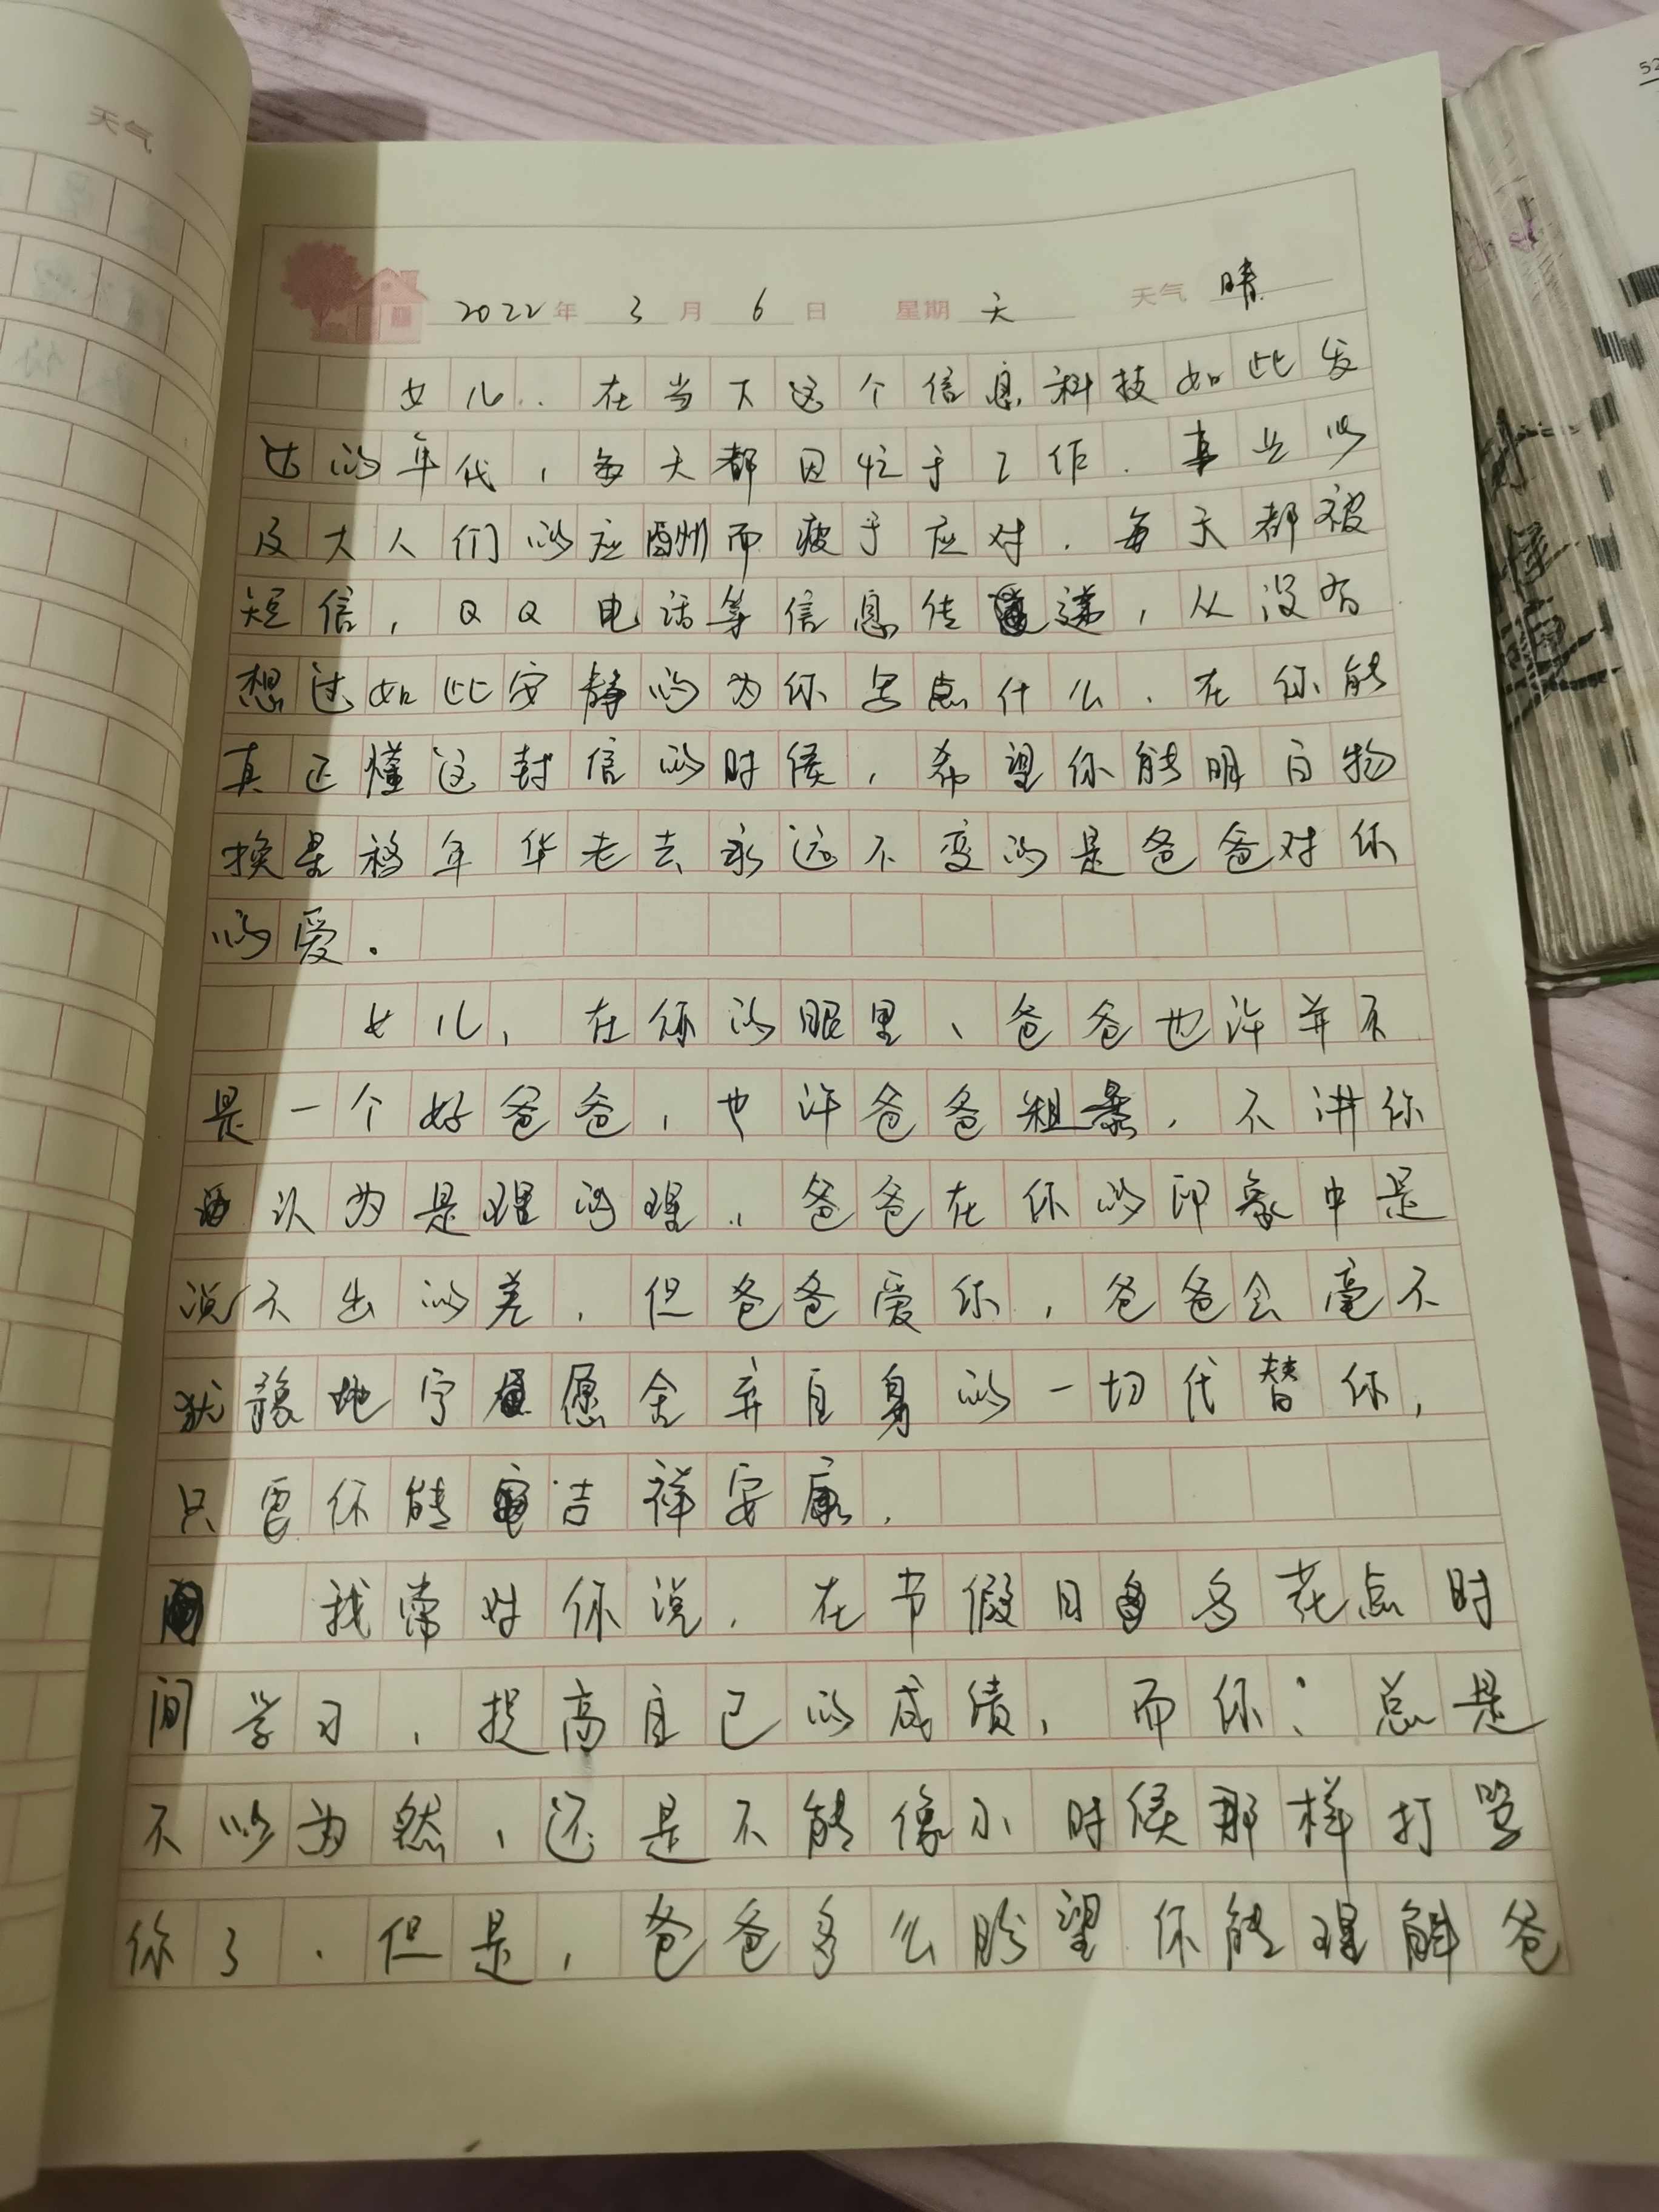 天气
2022年 3月 6日 星期 天 天气 晴
女儿.在当下这个信息科技如此发
达的年代,每天都因忙于工作.事业以
及大人们的应酬而疲于应对.每天都被
短信,QQ电话等信息传递,从没有
想过如此安静的为你写点什么.在你能
真正懂这封信的时候,希望你能明白物
换星移年华老去永远不变的是爸爸对你
的爱.
女儿,在你的眼里、爸爸也许并不
是一个好爸爸,也许爸爸粗暴,不讲你
认为是理的理.爸爸在你的印象中是
说不出的差,但爸爸爱你,爸爸会毫不
犹豫地宁愿舍弃自身的一切代替你,
只要你能吉祥安康.
我常对你说,在节假日多花点时
间学习,提高自己的成绩,而你:总是
不以为然,还是不能像小时候那样打骂
你了.但是,爸爸多么盼望你能理解爸
52